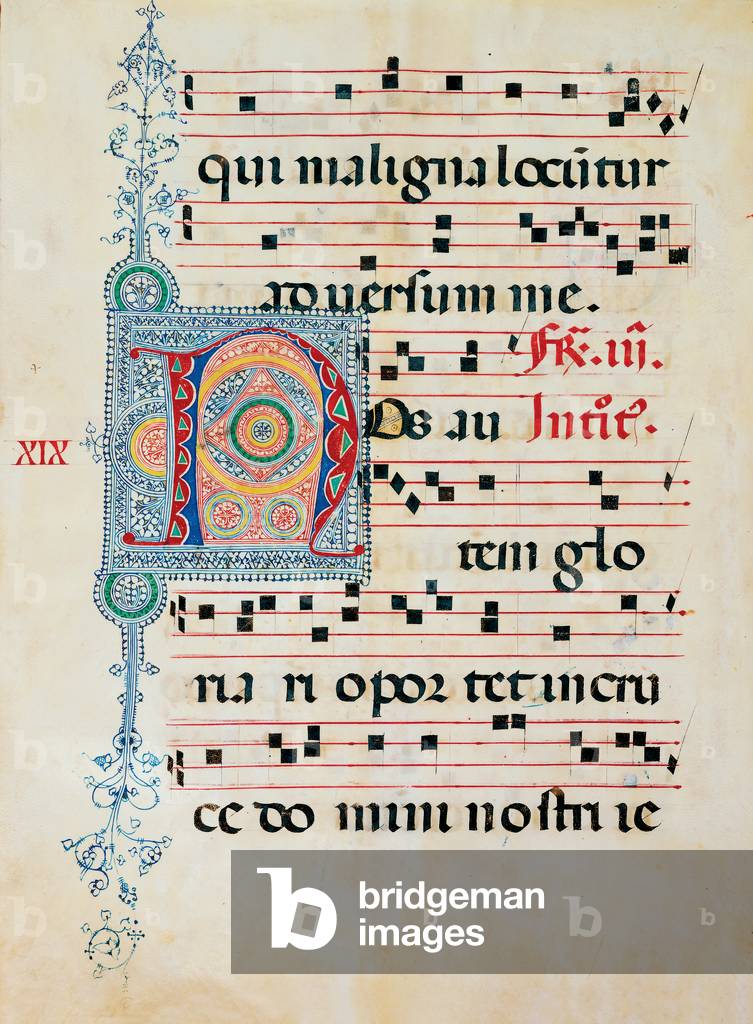 qui maligna locūtur
aduersum me.
Fr̃. iij.
XIX
Nos au Intoit.
tem glo
ria ri opor tet in cru
ce do mini nostri ie
bridgeman
images